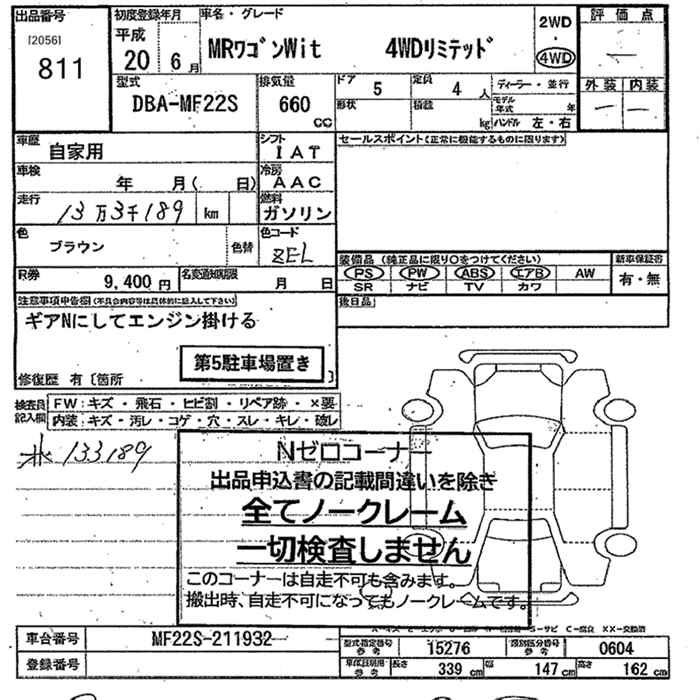 出品番号 初度登録年月 車名・グレード 2WD 評価点
[2056] 811 平成 20年 6月 MRワゴンWit 4WDリミテッド ・ 4WD ー
型式 排気量 ドア 5 定員 4人 ディーラー・並行 外装 内装
DBA-MF22S 660 CC 形状 積載 kg モデル年式 年 ー ー
ハンドル 左・右
車歴 自家用 シフト IAT セールスポイント(正常に機能するものに限ります)
車検 年 月( 日) 冷房 AAC
走行 13万3千189 km 燃料 ガソリン
色 ブラウン 色替 色コード ZEL
装備品(純正品に限り○をつけてください) 新車保証書
R券 9,400円 名変通知期限 月 日 PS PW ABS エアB AW 有・無
SR ナビ TV カワ
注意事項申告欄(不具合内容等は具体的に記入して下さい) 後日品
ギアNにしてエンジン掛ける
第5駐車場置き
修復歴 有〔箇所 〕
検査員記入欄 FW:キズ・飛石・ヒビ割・リペア跡・×要
内装:キズ・汚レ・コゲ・穴・スレ・キレ・破レ
133189
Nゼロコーナー
出品申込書の記載間違いを除き
全てノークレーム
一切検査しません
このコーナーは自走不可も含みます。
搬出時、自走不可になってもノークレームです。
車台番号 MF22S-211932 型式指定番号 参考 15276 類別区分番号 参考 0604
登録番号 車体証明用 参考 長さ 339 cm 幅 147 cm 高さ 162 cm